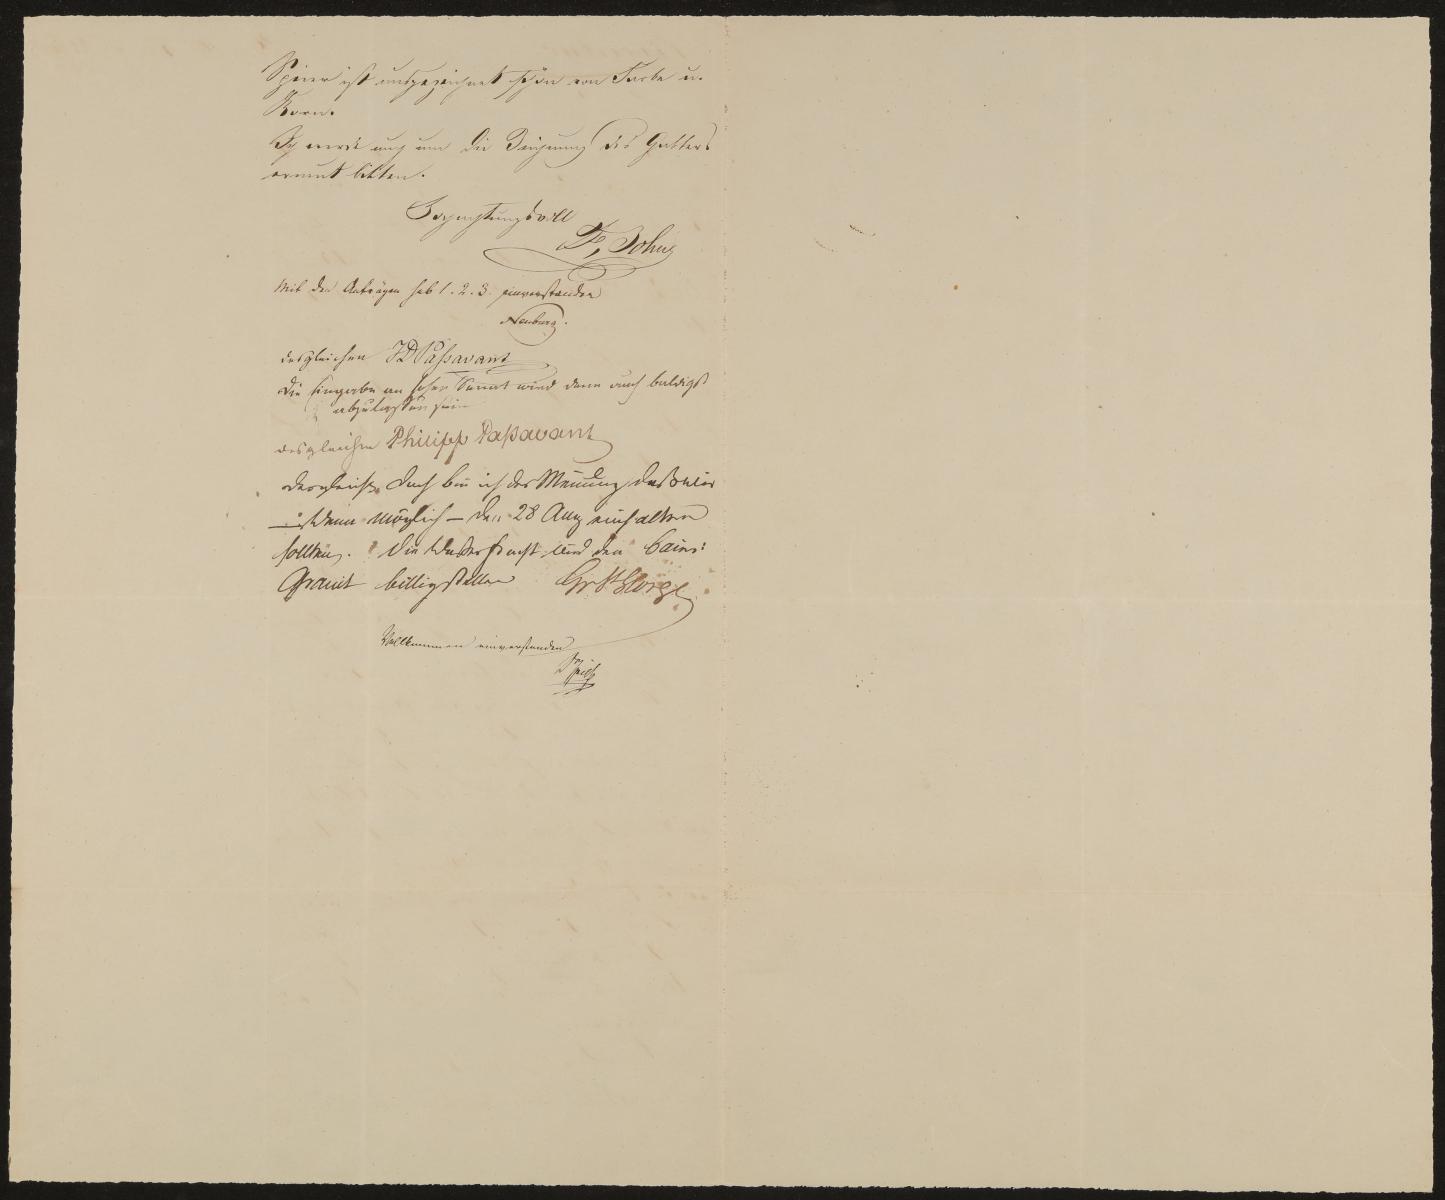 Speier ist ausgezeichnet schön von Farbe u.
Korn.
Ich werde auch um die Zeichnung des Gitters
ersucht bitten.
Hochachtungsvoll
Mit den Anträgen sub 1. 2. 3. einverstanden
Neuburg.
desgleichen JD Passavant
Die Eingabe an hohen Senat wird dann auch baldigst
abzulassen sein
desgleichen Philipp Paßavant
desgleich. Doch bin ich der Meinung daß wir
wenn möglich — den 28 Aug einhalten
sollten. Die Wasserfracht wird den
Granit billigstellen
Vollkommen einverstanden